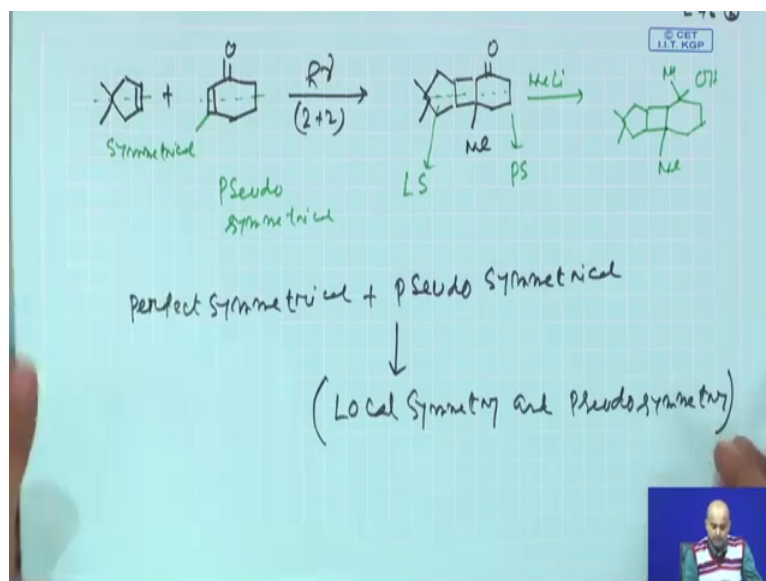 © CET
I.I.T. KGP
O
+
(2+2)
O
Me
MeLi
Me
OH
Me
Symmetrical
Pseudo
symmetrical
LS
PS
Perfect Symmetrical + Pseudo Symmetrical
(Local Symmetry and Pseudosymmetry)